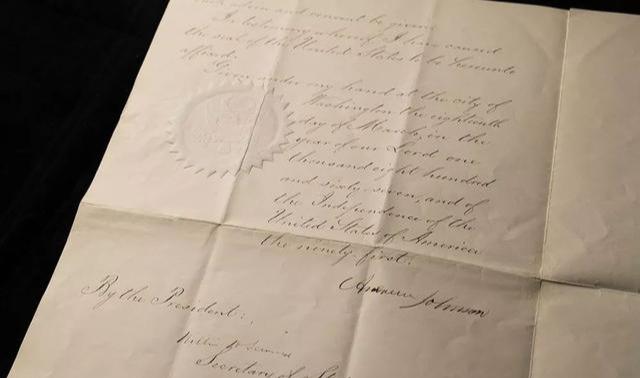 and consent be given.
In testimony whereof, I have caused
the seal of the United States to be hereunto
affixed.
Given under my hand at the city of
Washington the eighteenth
day of March, in the
year of our Lord one
thousand eight hundred
and sixty-seven, and of
the Independence of the
United States of America
the ninety first.
Andrew Johnson
By the President:
Secretary of